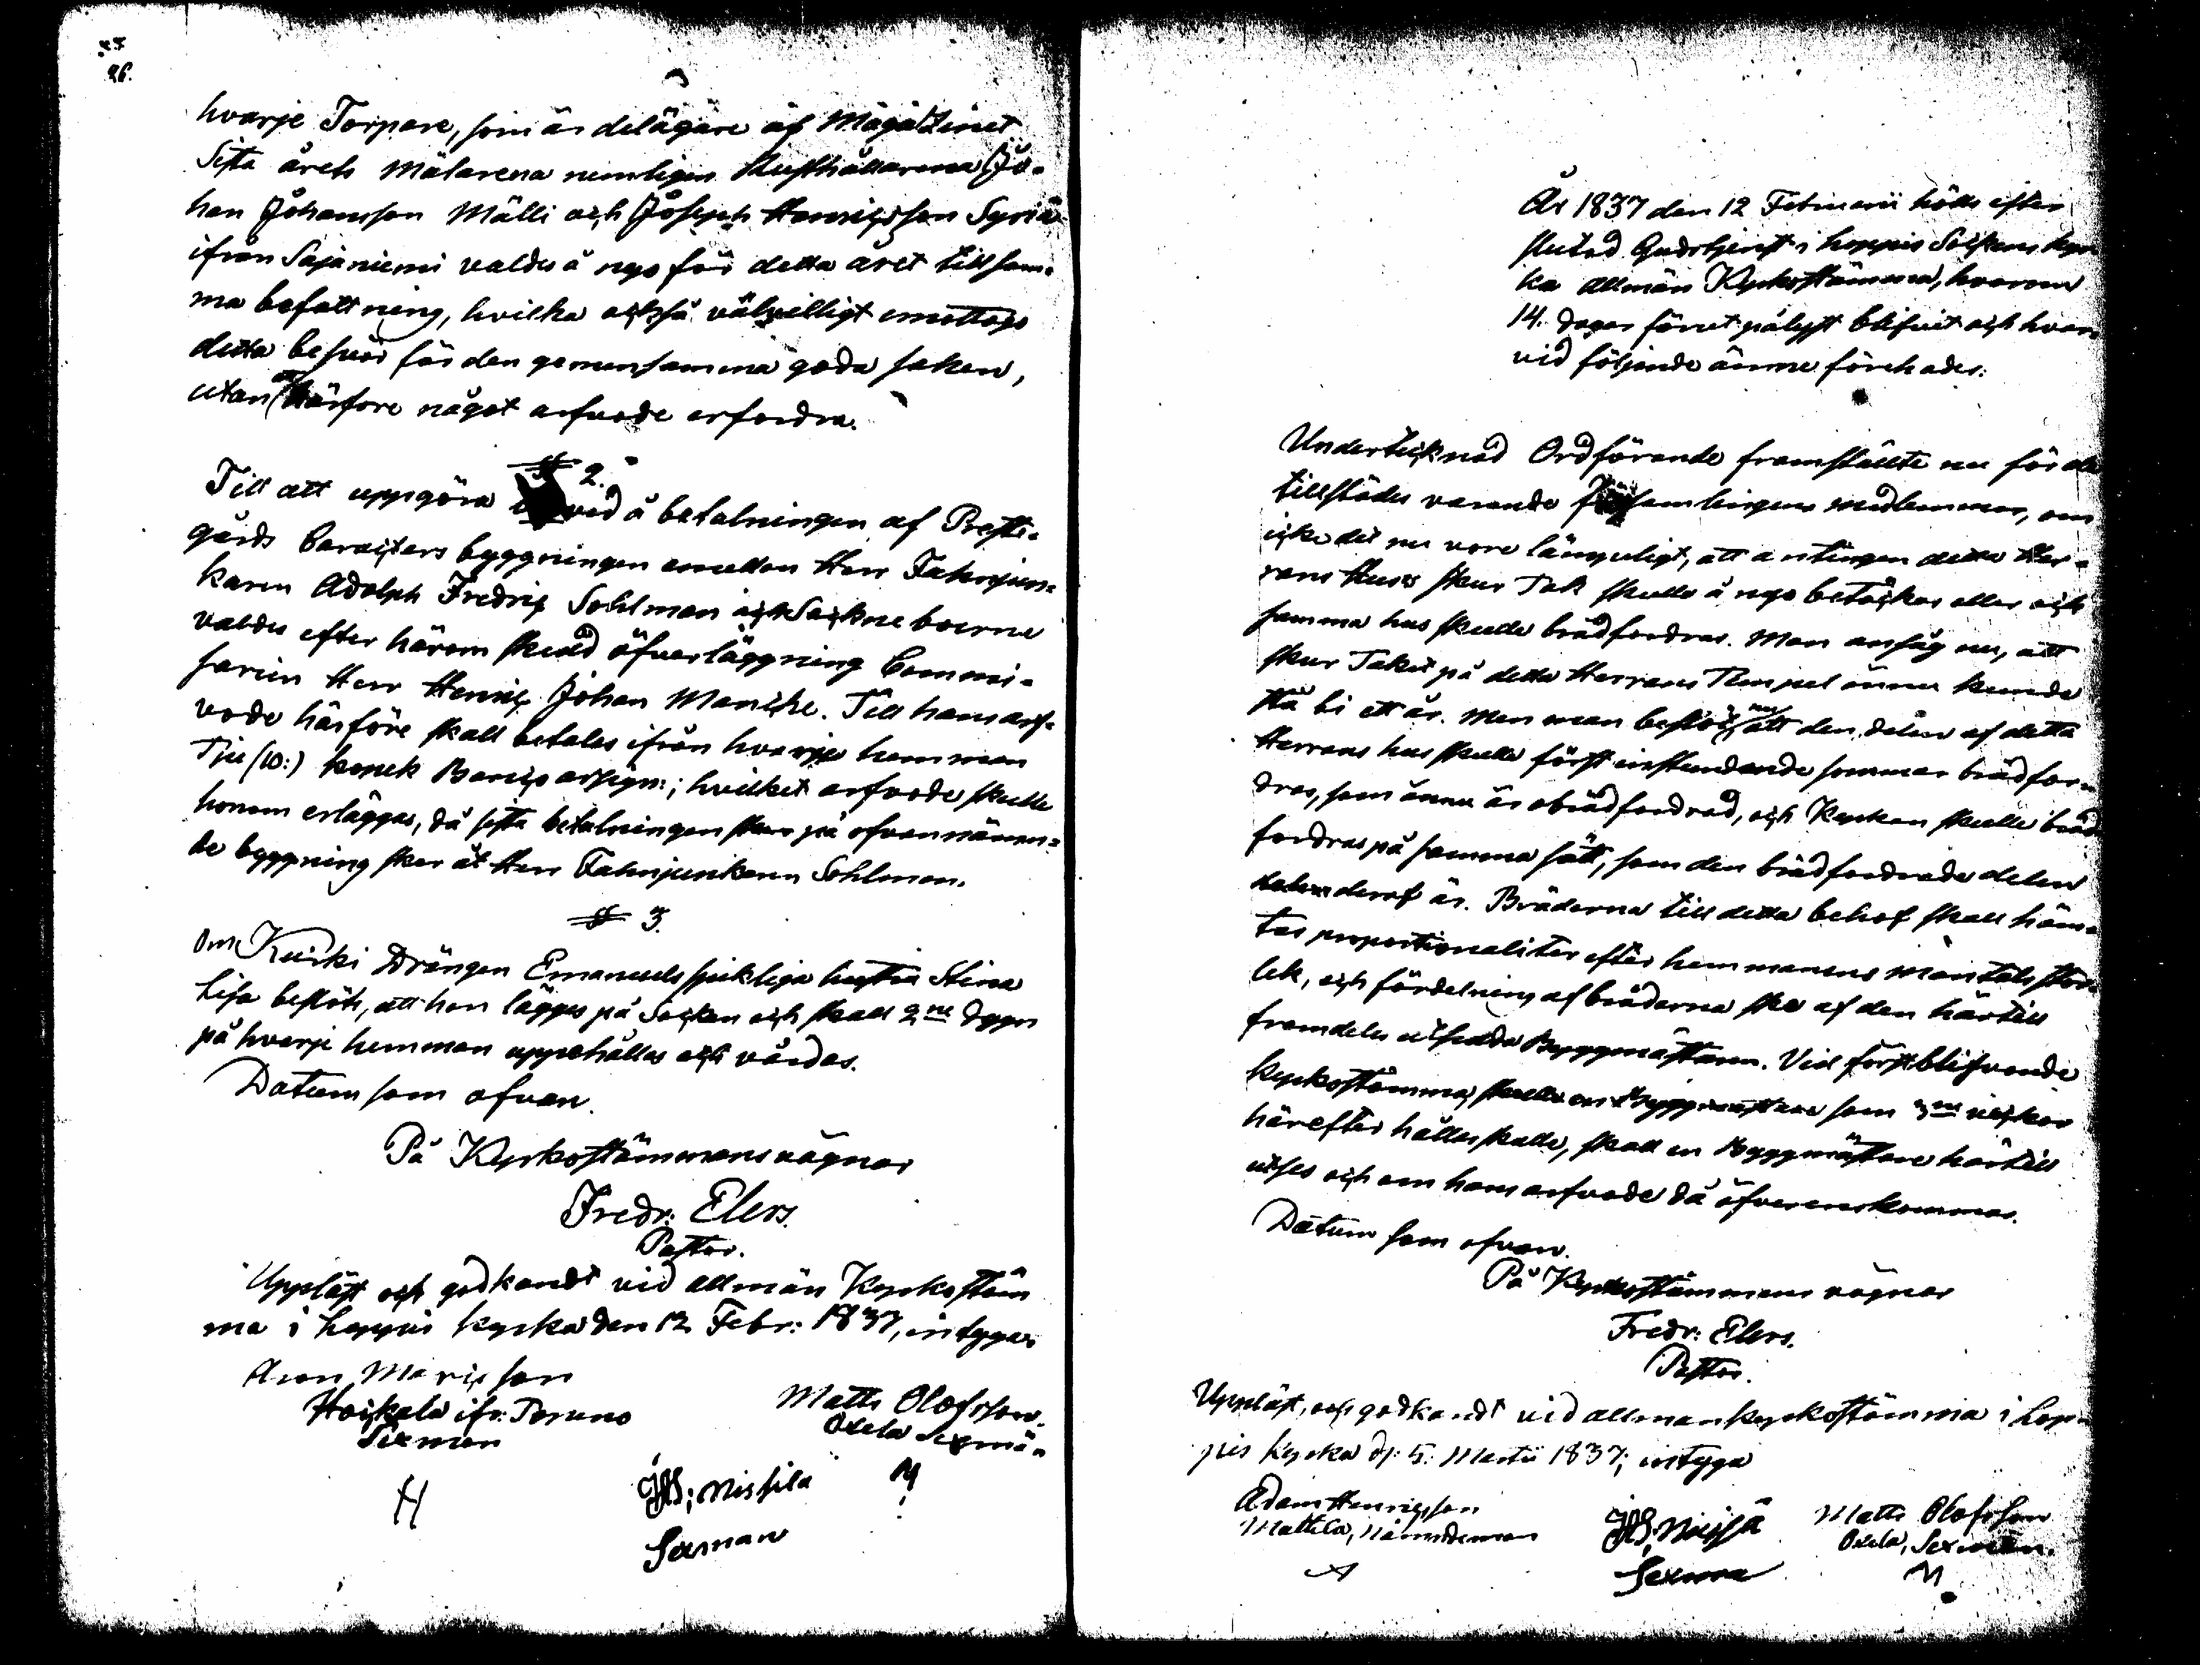 96.
hvarje Torpare, som är delägare af Magatzinet
Sista årets Mälarena nemligen Rusthållarena Jo-
han Johansson Mälli och Joseph Henricsson Syriä
ifrån Sajaniemi valdes å nyo för detta året till sam-
ma befattning, hvilka också välvilligt emottogo
detta besvär för den gemensamma goda saken,
utan att härfore något arfvode erfordra.
§ 2.
Till att uppgöra vid å betalningen af Prest-
gårds Caracters byggningen emellan Herr Fahnjun-
karen Adolph Fredric Sohlman och Sockne boerne
valdes efter härom skedd öfverläggning Commi-
sarien Herr Henric Johan Mancke. Till hans arf-
vode härföre skall betalas ifrån hvarje hemman
Tjie (10:) kopek Banco assign:; hvilket arfvode skulle
honom erläggas, då sista betalningen sker på ofvannämn-
de byggning sker åt Herr Fahnjunkaren Sohlman.
§ 3.
Om Kuiki Drängen Emanuels sjukliga hustru Stina
Lisa beslöts, att hon lägges på Socken och skall 2ne dygn
på hvarje hemman uppehållas och vårdas.
Datum som ofvan.
På Kyrkostämmans vägnar
Fredr: Elers.
Pastor.
Uppläst och godkändt vid allmän Kyrkostäm
ma i Loppis kyrka den 12 Febr: 1837, intyga
Aron Maricsson
Hoikala ifr: Torano
Sexman
Matts Olofsson.
Oxela Sexmän
H
JHS; Nissila
M
Sexman
År 1837 den 12 Februarii hölls efter
slutad Gudstjenst i Loppis Sockens kyr
ka allmän Kyrkostämma, hvarom
14. dagar förut pålyst blifvit och hvar-
vid följande ämne förehades:
Undertecknad Ordförande framställte nu för de
tillstädes varande församlingens medlemmar, om
icke det nu vore lämpeligt, att antingen detta Her-
rans Huses skur Tak skulle å nyo betäckas eller och
samma hus skulle brädfordras. Man ansåg nu, att
skur Taket på detta Herrans Tempel ännu kunde
stå bi ett år. Men man beslöt nu att den delen af detta
Herrans hus skulle först instundande sommar brädfor-
dras, som ännu är obrädfordrad, och Kyrkan skulle bräd
fordras på samma sätt, som den brädfordrade delen
deraf är. Bräderna till detta behof skall häm-
tas proportionaliter efter hemmanens mantals stor-
lek, och fördelning af bräderna ske af den härtill
framdeles utsedda Byggmästaren. Vid först blifvande
kyrkostämma, skulle en Byggmästare som 3ne veckor
härefter hållas skulle, skall en Byggmästare härtill
utses och om hans arfvode då öfverenskommas.
Datum som ofvan.
På Kyrkostämmans vägnar
Fredr: Elers.
Pastor.
Uppläst, och godkändt vid allmän kyrkostämma i Lop-
pis kyrka d: 5: Martii 1837, intyga
Adam Henricsson
Mattila, Nämndeman
JHS; Nissilä
Sexman
Matts Olofsson
Oxela, Sexmän.
M